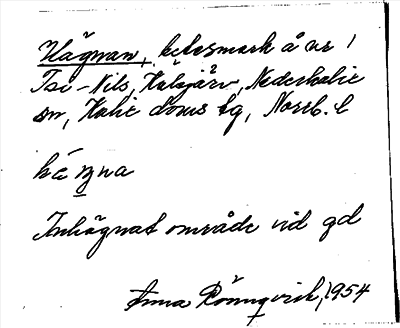 Hägnan, betesmark å nr 1
Isi-Nils, Halsjärv, Nederkalix
sn, Kalix doms tg, Norrb. l
hä ŋna
Inhägnat område vid gd
Anna Rönnqvist, 1954